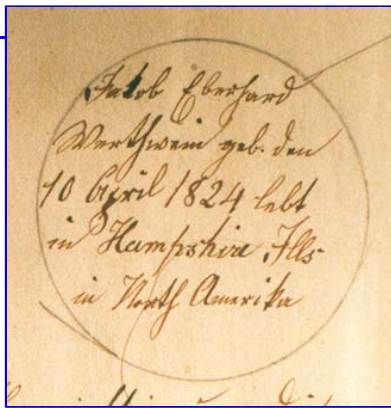 Jacob Eberhard
Werthwein geb. den
10 April 1824 lebt
in Hampshire, Ills.
in North Amerika